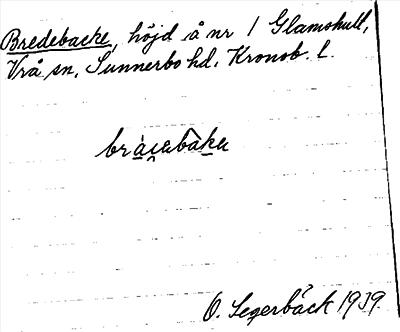 Bredebacke, höjd å nr 1 Glamshult,
Vrå sn, Sunnerbo hd, Kronob. l.
O. Segerbäck 1939.